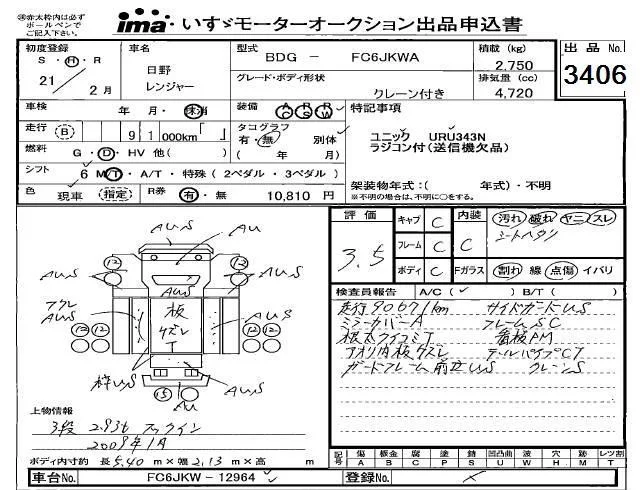 ㊟赤太枠内は必ず
ボールペンで
ご記入下さい。
ima いすゞモーターオークション出品申込書
初度登録
S ・ H ・ R
21
2月
車名
日野
レンジャー
型式
BDG － FC6JKWA
グレード・ボディ形状
クレーン付き
積載 (kg)
2,750
排気量 (cc)
4,720
出品 No.
3406
車検 年 月・抹消
装備 AC PS PW
特記事項
走行 (B) 9 1 000km「 」
タコグラフ
有・無 別体
( 年 月)
ユニック URU343N
ラジコン付(送信機欠品)
燃料 G・D・HV 他( )
シフト 6 M/T・A/T・特殊 ( 2ペダル ・ 3ペダル )
架装物年式：( 年式)・不明
※不明の場合は、不明に○をする。
色 現車 指定 R券 有・無 10,810 円
評価
3.5
キャブ C
フレーム C
ボディ C
内装 C
Fガラス
汚れ 破れ ヤニ スレ
シートヘタリ
割れ 線 点傷 イバリ
検査員報告 A/C ( ✓ ) B/T ( )
走行90671km サイドガードUS
ミラーカバーA フレームSC
根太クイコミT 看板PM
アオリ内板ケズレ テールパイプCT
ガードフレーム前立US クレーンS
AUS
AU
AUS
12
12
AUS
AUS
AUS
板
ケズレ
T
AUS
12 12
12 12
枠US
AUS
AUS
15
AU
上物情報
3段 2.93t フックイン
2009年1月
ボディ内寸約 長 5.40 m × 幅 2.13 m × 高 m
記号
傷 板金 腐 塗 錆 凹凸曲 波 穴 跡 レツ割
A B C P S U W H M T
車台No. FC6JKW－12964
登録No.